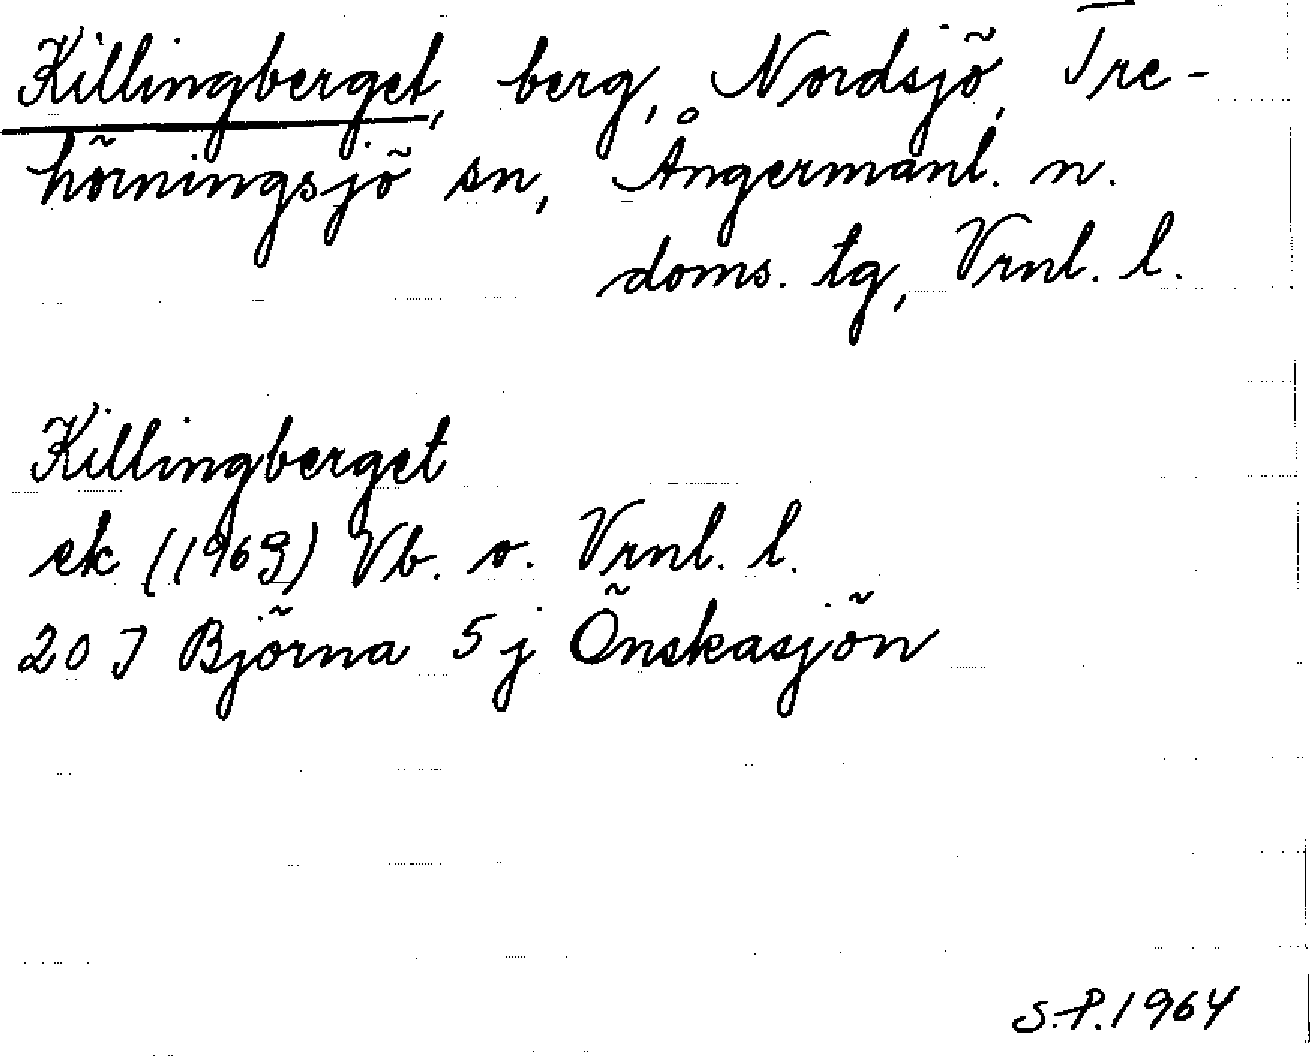 Killingberget, berg, Nordsjö, Tre-
hörningsjö sn, Ångermanl. n.
doms. tg, Vrnl. l.
Killingberget
ek (1963) Vb. o. Vrnl. l.
20 J Björna 5 j Önskasjön
S.P. 1964